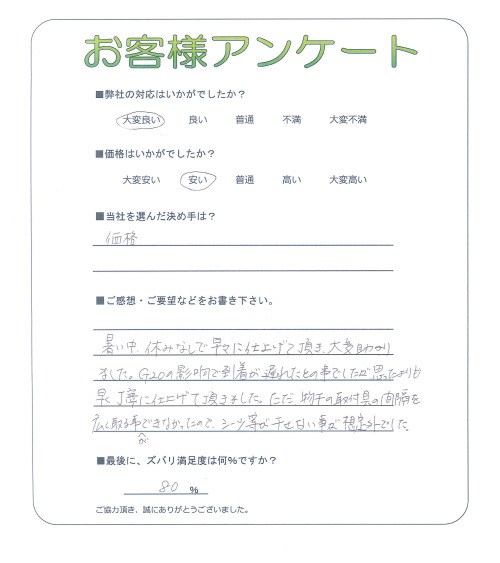 お客様アンケート
■弊社の対応はいかがでしたか？
大変良い 良い 普通 不満 大変不満
■価格はいかがでしたか？
大変安い 安い 普通 高い 大変高い
■当社を選んだ決め手は？
価格
■ご感想・ご要望などをお書き下さい。
暑い中、休みなしで早々に仕上げて頂き、大変助かり
ました。G20の影響で到着が遅れたとの事でしたが思ったよりも
早く丁寧に仕上げて頂きました。ただ、物干の取付具の間隔を
広く取る事ができなかったので、シーツ等が干せない事が想定外でした。
■最後に、ズバリ満足度は何%ですか？
80 %
ご協力頂き、誠にありがとうございました。